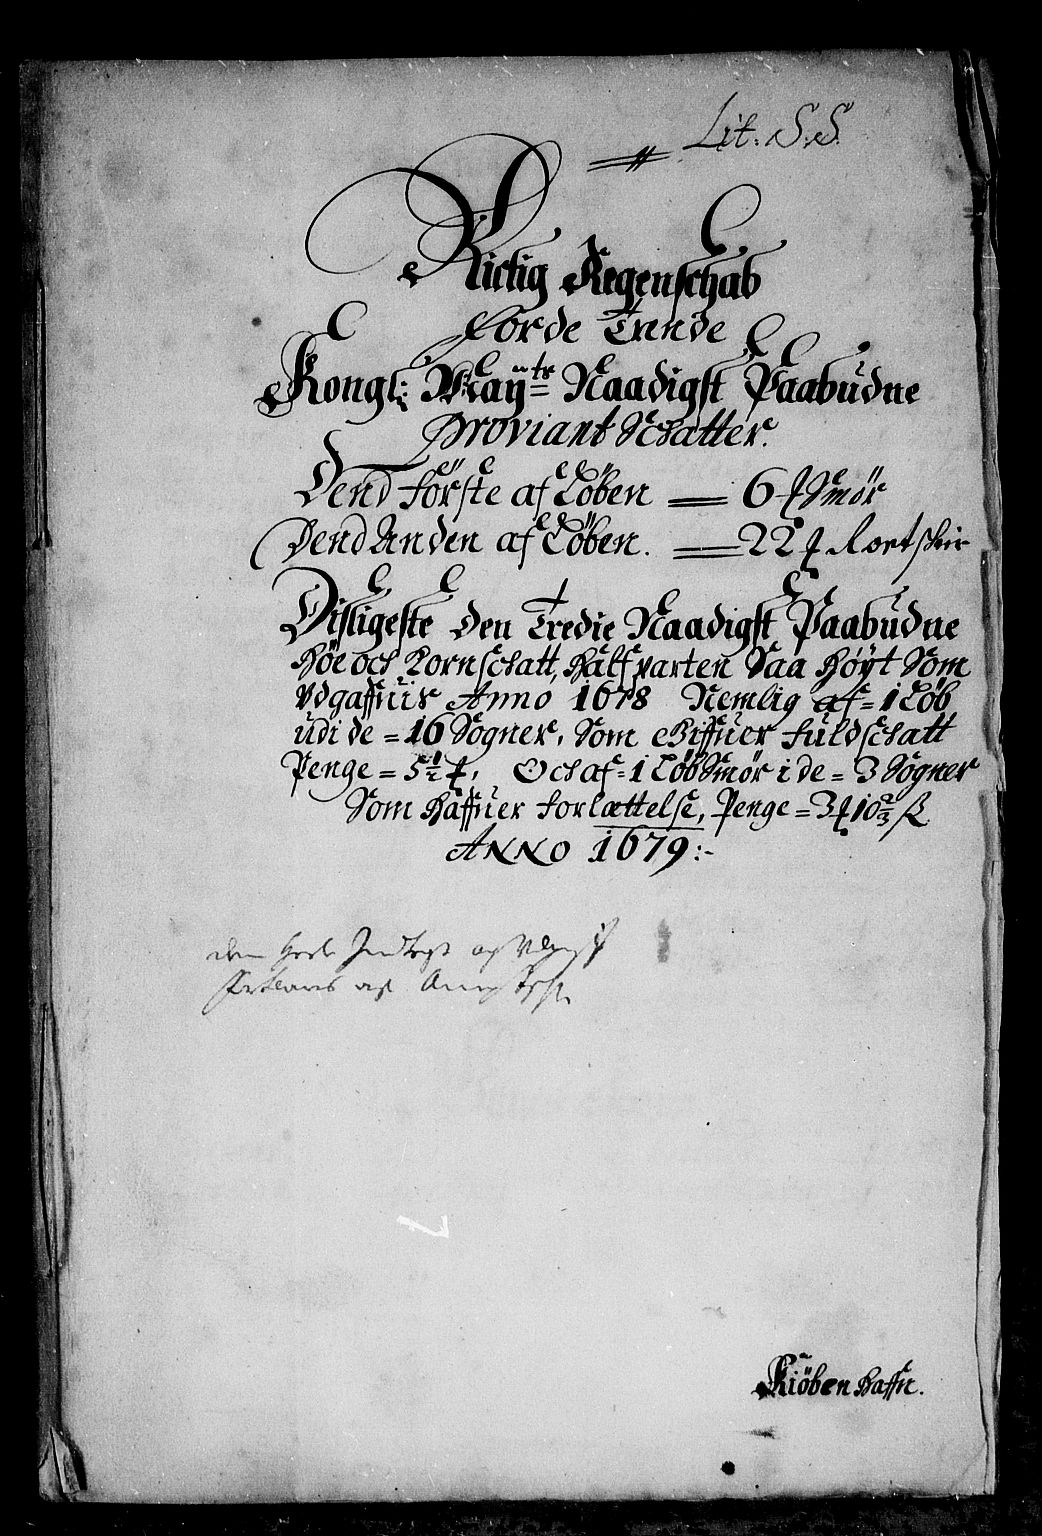 Lit. S.S.
Rictig Regenschab
forde Trende
Kongl: Maÿtz Naadigst Paabudne
Proviant Schatter.
Dend förste af Löben = 6 ℔ Smör
Dend Anden af Löben. = 22 ℔
Disligeste den Tredie Naadigst Paabudne
Höe och Kornschatt, Halfparten Saa høyt Som
Udgaffuis Anno 1678 Nemlig af = 1 Löb
udi de = 16 Sogner, Som Giffuer fuldschatt
Penge = 5½ ℔, Och af = 1 Löb Smör i de = 3 Sogner
Som Haffuer forlættelse, Penge = 3 ℔ 10⅔ ß
ANNO 1679:-
Kiöbenhaffn.